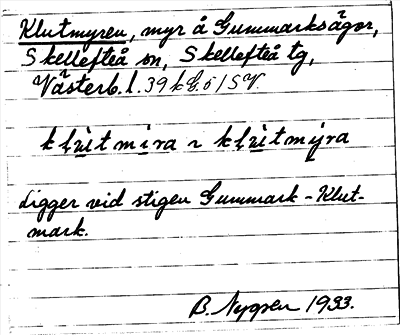 Klutmyren, myr å Gummarksågor,
Skellefteå sn, Skellefteå tg,
Västerb. l. 39 k G. ö / SV.
ligger vid stigen Gummark - Klut-
mark.
B. Nygren 1933.